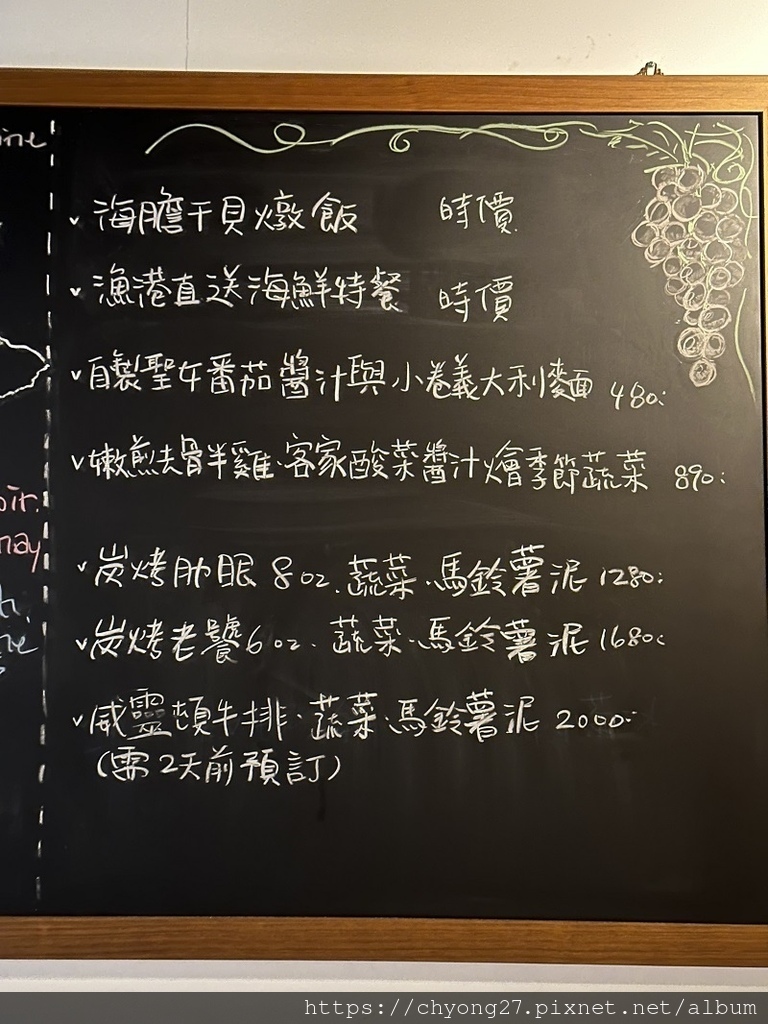 ine
海膽干貝燉飯 時價
漁港直送海鮮特餐 時價
自製聖女番茄醬汁與小卷義大利麵 480.-
嫩煎去骨半雞.客家酸菜醬汁燴季節蔬菜 890.-
oir.
may
炭烤肋眼 8oz.蔬菜.馬鈴薯泥 1280.-
炭烤老饕6oz.蔬菜.馬鈴薯泥 1680.-
威靈頓牛排.蔬菜.馬鈴薯泥 2000.-
(需2天前預訂)
https://chyong27.pixnet.net/album